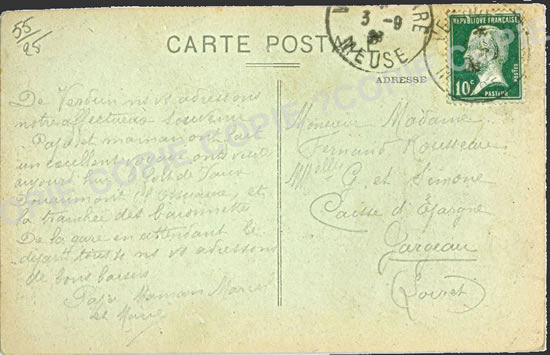 55/25
CARTE POSTALE
3 - 9
MEUSE
ADRESSE
REPUBLIQUE FRANÇAISE
POSTES
10c PASTEUR
COPIE COPIE COPIE COPIE
De Verdun ns vs adressons
notre affectueux souvenir
Papa et maman ont fait
un excellent voyage ont visité
aujourd'hui de Vaux
Douaumont (l'Ossuaire) et
la tranchée des baïonnettes
De la gare en attendant le
départ tous 4 ns vs adressons
de bons baisers
Papa Maman Marcel
et Marie
Monsieur Madame
Fernand Rousseau
Melles G. et Simone
Caisse d'Epargne
Jargeau
(Loiret)